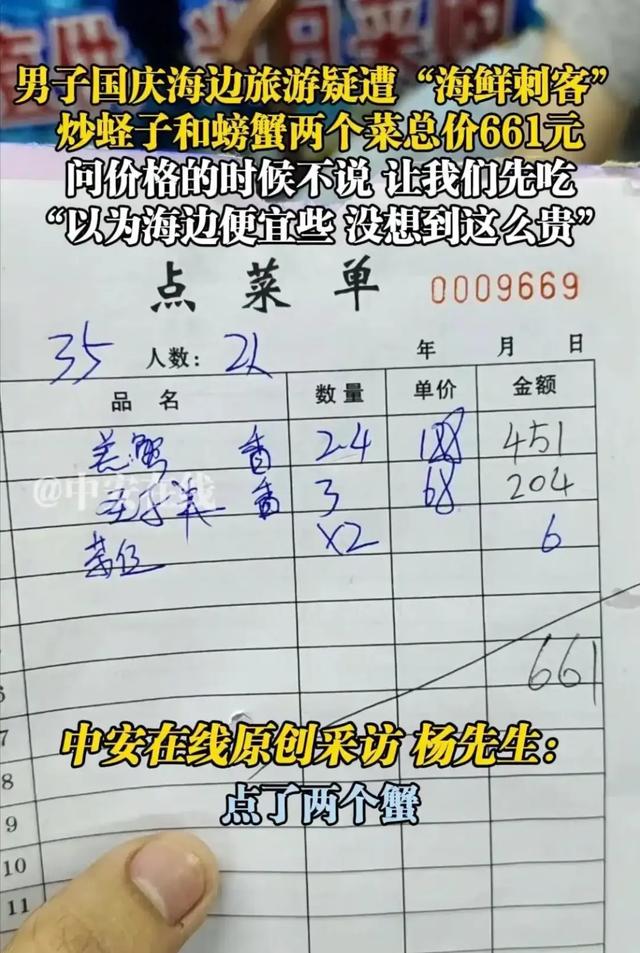 男子国庆海边旅游疑遭“海鲜刺客”
炒蛏子和螃蟹两个菜总价661元
问价格的时候不说 让我们先吃
“以为海边便宜些 没想到这么贵”
点菜单 0009669
35 人数： 2人 年 月 日
品名 数量 单价 金额
羔蟹 香 2.4 188 451
3 68 204
茶位 x2 6
@中安在线
661
6
7
中安在线原创采访 杨先生：
点了两个蟹
8
9
10
11